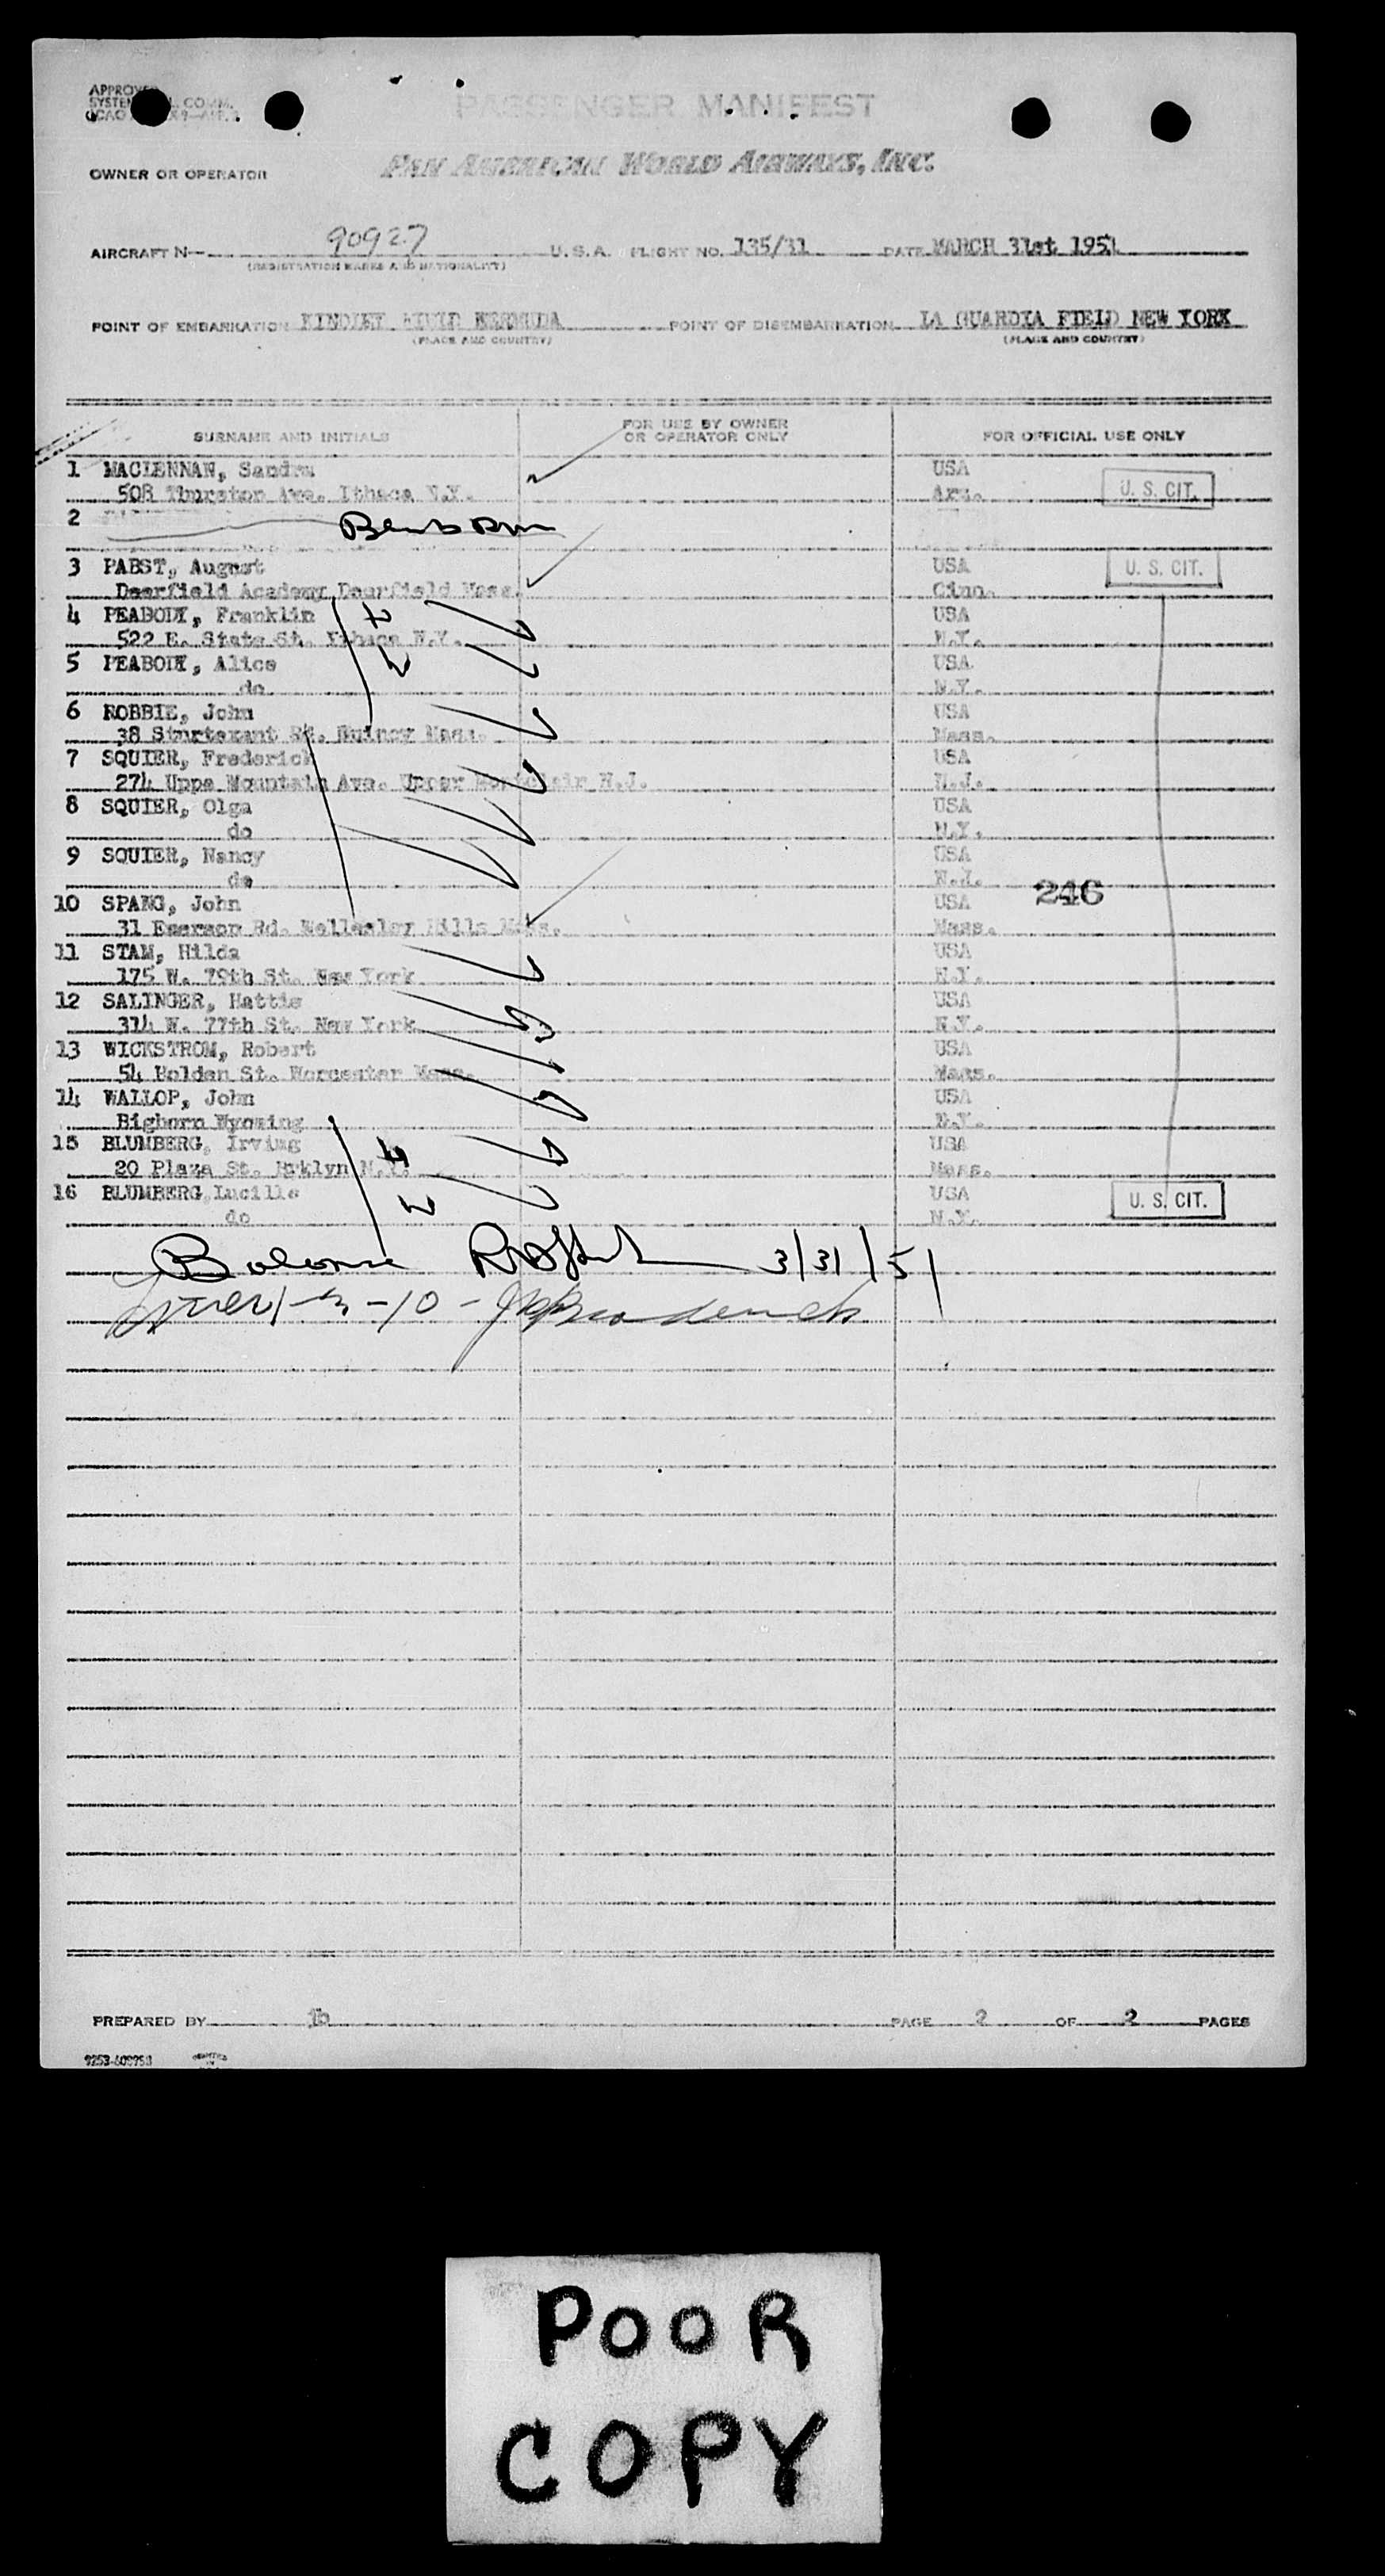 PASSENGER MANIFEST
OWNER OR OPERATOR PAN AMERICAN WORLD AIRWAYS, INC.
AIRCRAFT N— 90927 U.S.A. FLIGHT NO. 135/31 DATE MARCH 31st 1951
(REGISTRATION MARKS AND NATIONALITY)
POINT OF EMBARKATION KINDLEY FIELD BERMUDA POINT OF DISEMBARKATION LA GUARDIA FIELD NEW YORK
(PLACE AND COUNTRY) (PLACE AND COUNTRY)
SURNAME AND INITIALS FOR USE BY OWNER OR OPERATOR ONLY FOR OFFICIAL USE ONLY
1 MACLENNAN, Sandra USA
508 Thurston Ave. Ithaca N.Y. U. S. CIT.
2
3 PABST, August USA U. S. CIT.
Deerfield Academy Deerfield Mass. Cinn.
4 PEABODY, Franklin USA
522 E. State St. Ithaca N.Y. N.Y.
5 PEABODY, Alice USA
do N.Y.
6 ROBBIE, John USA
38 Sturtevant Rd. Quincy Mass. Mass.
7 SQUIER, Frederick USA
274 Uppe Mountain Ave. Upper Montclair N.J. N.J.
8 SQUIER, Olga USA
do N.Y.
9 SQUIER, Nancy USA
do N.J. 246
10 SPANG, John USA
31 Emerson Rd. Wellesley Hills Mass. Mass.
11 STAM, Hilda USA
175 W. 79th St. New York N.Y.
12 SALINGER, Hattie USA
314 W. 77th St. New York N.Y.
13 WICKSTROM, Robert USA
54 Holden St. Worcester Mass. Mass.
14 WALLOP, John USA
Bighorn Wyoming N.Y.
15 BLUMBERG, Irving USA
20 Plaza St. Brklyn N.Y. Mass.
16 BLUMBERG, Lucille USA U. S. CIT.
do N.Y.
3/31/51
PREPARED BY PAGE 2 OF 2 PAGES
POOR
COPY